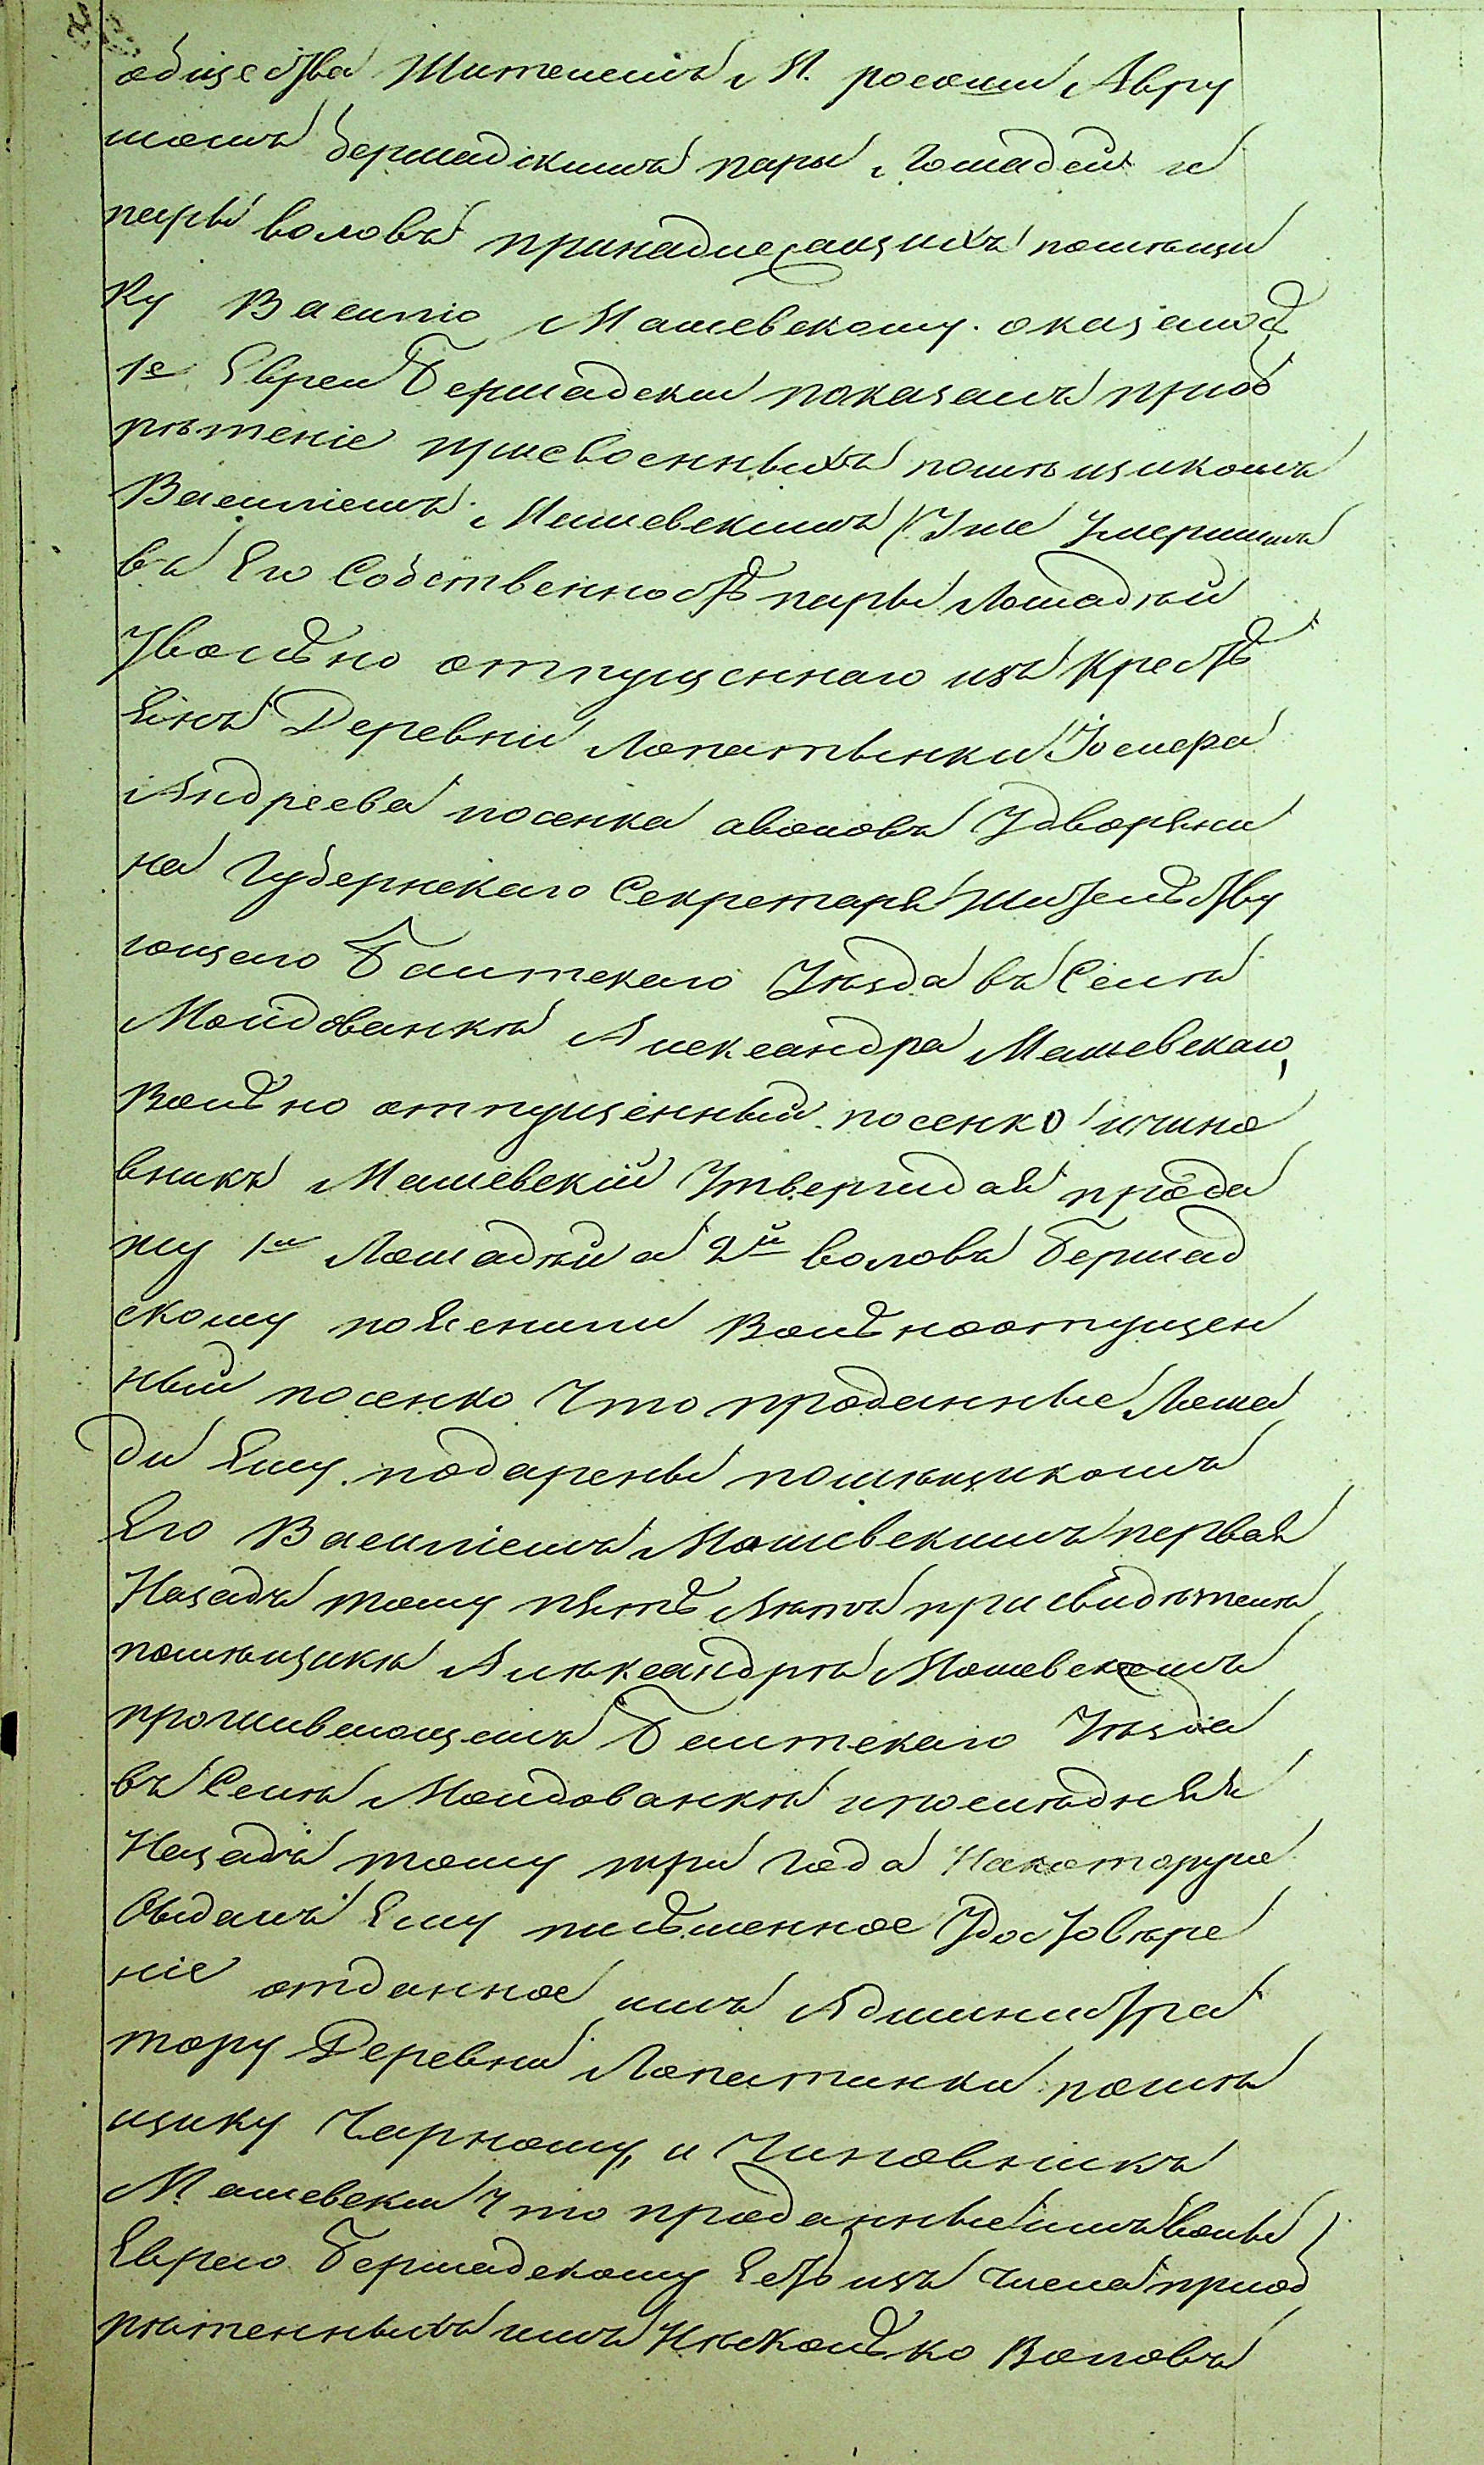 общества Жителемъ М. росоши Авру
момъ бершадскимъ пары лошадей и
пары воловъ принадлежащихъ помѣщи
ку Василію Машевскому. оказалось
1е Еврей Бершадскій показалъ пріоб
рѣтеніе присвоенныхъ помѣщикомъ
Василіемъ Машевскимъ (Уже Умершимъ
въ Его Собственность пары Лошадѣй
Увольно отпущеннаго изъ Кресть
янъ Деревни Лопатынки Іосифа
Андреева посенка аволовъ Удворяни
на Губернскаго Секретаря Жительству
ющаго Балтскаго Уѣзда въ Селѣ
Молдованкѣ Александра Машевскаго,
Вольно отпущенный посенко ичино
вникъ Машевскій Утверждая прода
жу 1й Лошадѣй а 2й воловъ Бершад
скому пояснили Вольноотпущен
ный посенко Что проданные Лоша
ди Ему подарены помѣщикомъ
Его Василіемъ Машевскимъ первая
Назадъ тому пять лѣтъ при свидѣтелѣ
помѣщикѣ Алѣксандрѣ Машевскомъ
проживающемъ Балтскаго Уѣзда
въ Селѣ Молдованкѣ ипослѣдняя
Назадъ тому три года Накоторую
Овыдалъ Ему письменное Удостовѣре
ніе отданное имъ Администра
тору Деревни Лопатинки помѣ
щику Чарному, и Чиновникъ
Машевскій Что проданные имъ волы
Еврею Бершадскому Есть изъ числа приоб
рѣтенныхъ имъ Нѣсколько Воловъ